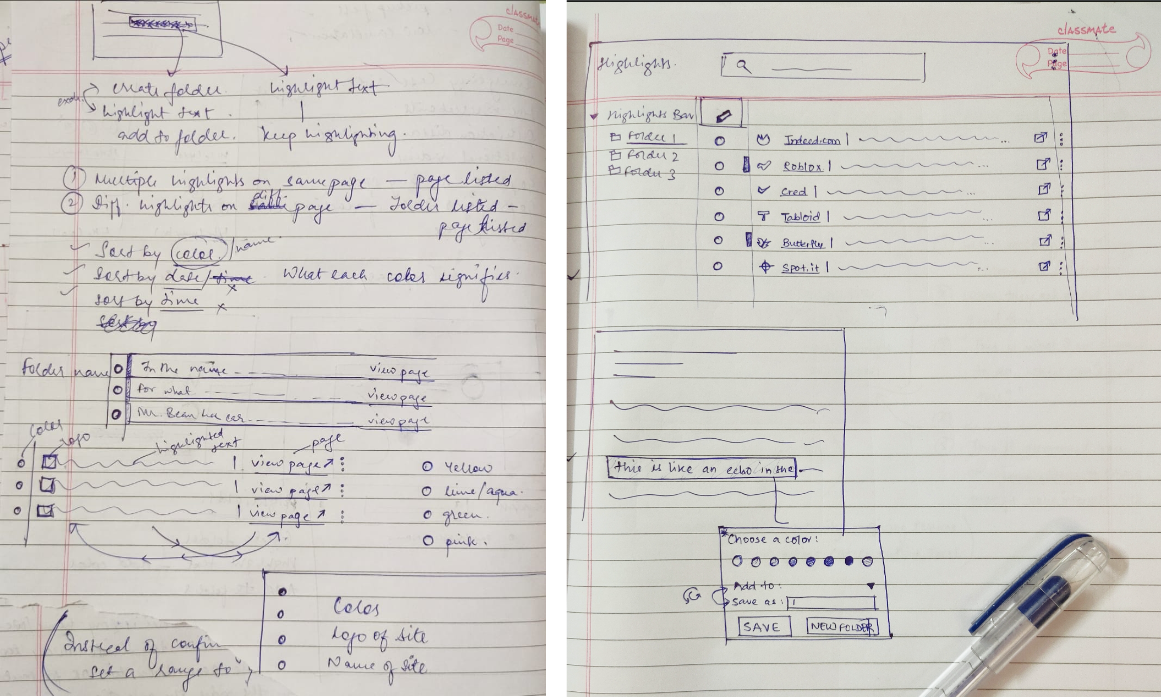 classmate
Date
Page
create folder.
highlight text
highlight text.
add to folder.
keep highlighting.
① Multiple highlights on same page — page listed
② Diff. highlights on diff page — Folder listed –
page listed
Sort by color/name.
Sort by date/time
What each color signifies.
Sort by time x
Folder name
In the name
view page
for what
view page
Mr. Bean has car
view page
color
logo
highlighted text
page
view page ↗
view page ↗
view page ↗
yellow
lime/aqua.
green.
pink.
Color
Logo of site
Name of site
Instead of
set a range to
classmate
Date
Page
Highlights.
Highlights Bar
Folder 1
Folder 2
Folder 3
Indeed.com |
Roblox |
Cred |
Tabloid |
Butterfly |
Spot.it |
this is like an echo in the
Choose a color:
Add to:
Save as:
SAVE
NEW FOLDER